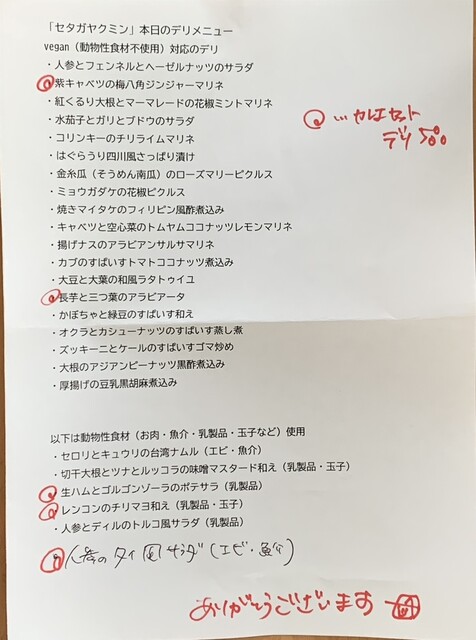 「セタガヤクミン」本日のデリメニュー
vegan（動物性食材不使用）対応のデリ
・人参とフェンネルとヘーゼルナッツのサラダ
・紫キャベツの梅八角ジンジャーマリネ
・紅くるり大根とマーマレードの花椒ミントマリネ
・水茄子とガリとブドウのサラダ
・コリンキーのチリライムマリネ
・はぐらうり四川風さっぱり漬け
・金糸瓜（そうめん南瓜）のローズマリーピクルス
・ミョウガダケの花椒ピクルス
・焼きマイタケのフィリピン風酢煮込み
・キャベツと空心菜のトムヤムココナッツレモンマリネ
・揚げナスのアラビアンサルサマリネ
・カブのすぱいすトマトココナッツ煮込み
・大豆と大葉の和風ラタトゥイユ
・長芋と三つ葉のアラビアータ
・かぼちゃと緑豆のすぱいす和え
・オクラとカシューナッツのすぱいす蒸し煮
・ズッキーニとケールのすぱいすゴマ炒め
・大根のアジアンピーナッツ黒酢煮込み
・厚揚げの豆乳黒胡麻煮込み
… カレーセット
デリ
以下は動物性食材（お肉・魚介・乳製品・玉子など）使用
・セロリとキュウリの台湾ナムル（エビ・魚介）
・切干大根とツナとルッコラの味噌マスタード和え（乳製品・玉子）
・生ハムとゴルゴンゾーラのポテサラ（乳製品）
・レンコンのチリマヨ和え（乳製品・玉子）
・人参とディルのトルコ風サラダ（乳製品）
人参のタイ風サラダ（エビ・魚介）
ありがとうございます